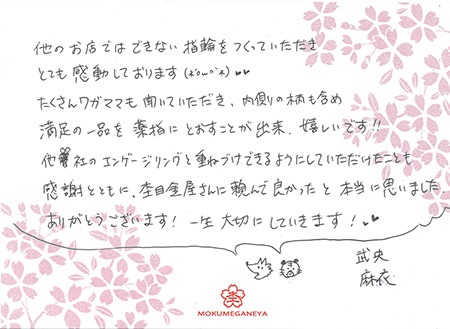 他のお店ではできない指輪をつくっていただき
とても感動しております
たくさんワガママも聞いていただき、内側の柄も含め
満足の一品を薬指にとおすことが出来、嬉しいです!!
他社のエンゲージリングと重ねづけできるようにしていただけたことも
感謝とともに、杢目金屋さんに頼んで良かったと本当に思いました
ありがとうございます！一生大切にしていきます！
武央
麻衣
MOKUMEGANEYA